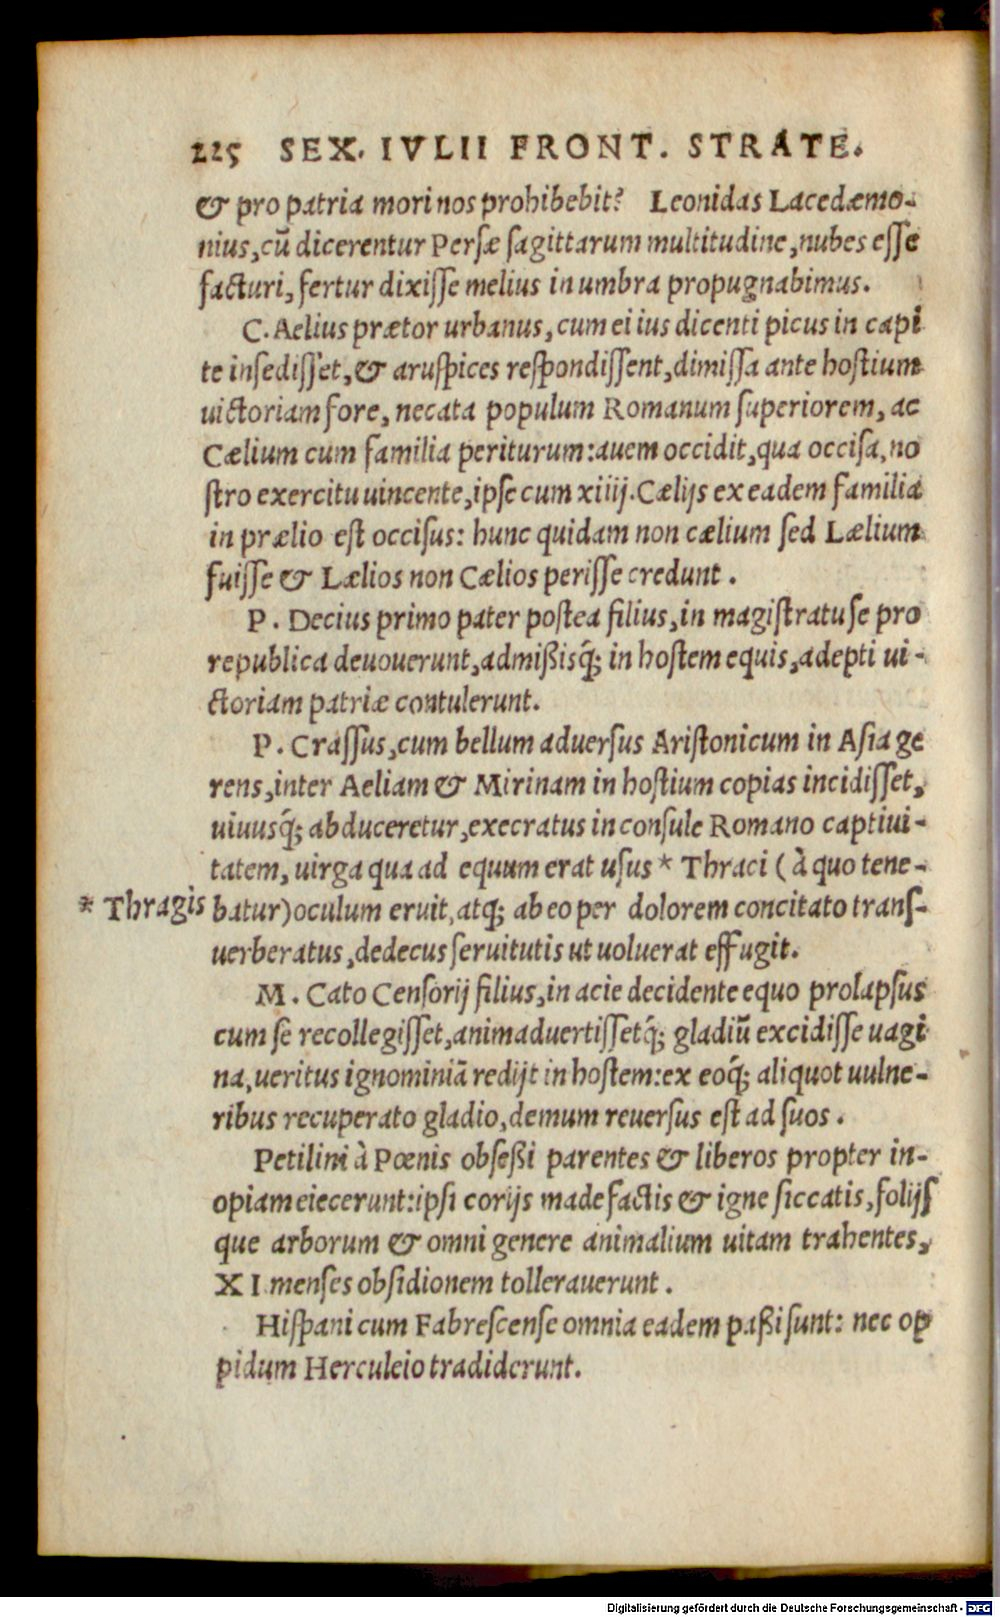 225 SEX. IVLII FRONT. STRATE.
& pro patria mori nos prohibebit? Leonidas Lacedæmo-
nius, cũ dicerentur Persæ sagittarum multitudine, nubes esse
facturi, fertur dixisse melius in umbra propugnabimus.
C. Aelius prætor urbanus, cum ei ius dicenti picus in capi
te insedisset, & aruspices respondissent, dimissa ante hostium
uictoriam fore, necata populum Romanum superiorem, ac
Cælium cum familia periturum: auem occidit, qua occisa, no
stro exercitu uincente, ipse cum xiiij. Cælijs ex eadem familia
in prælio est occisus: hunc quidam non cælium sed Lælium
fuisse & Lælios non Cælios perisse credunt.
P. Decius primo pater postea filius, in magistratu se pro
republica deuouerunt, admißisq́; in hostem equis, adepti ui-
ctoriam patriæ contulerunt.
P. Crassus, cum bellum aduersus Aristonicum in Asia ge
rens, inter Aeliam & Mirinam in hostium copias incidisset,
uiuusq́; abduceretur, execratus in consule Romano captiui-
tatem, uirga qua ad equum erat usus * Thraci (à quo tene-
* Thragis batur) oculum eruit, atq; ab eo per dolorem concitato trans-
uerberatus, dedecus seruitutis ut uoluerat effugit.
M. Cato Censorij filius, in acie decidente equo prolapsus
cum se recollegisset, animaduertissetq́; gladiũ excidisse uagi
na, ueritus ignominiã redijt in hostem: ex eoq́; aliquot uulne-
ribus recuperato gladio, demum reuersus est ad suos.
Petilini à Pœnis obseßi parentes & liberos propter in-
opiam eiecerunt: ipsi corijs madefactis & igne siccatis, folijs
que arborum & omni genere animalium uitam trahentes,
XI menses obsidionem tollerauerunt.
Hispani cum Fabrescense omnia eadem paßi sunt: nec op
pidum Herculeio tradiderunt.
Digitalisierung gefördert durch die Deutsche Forschungsgemeinschaft - DFG